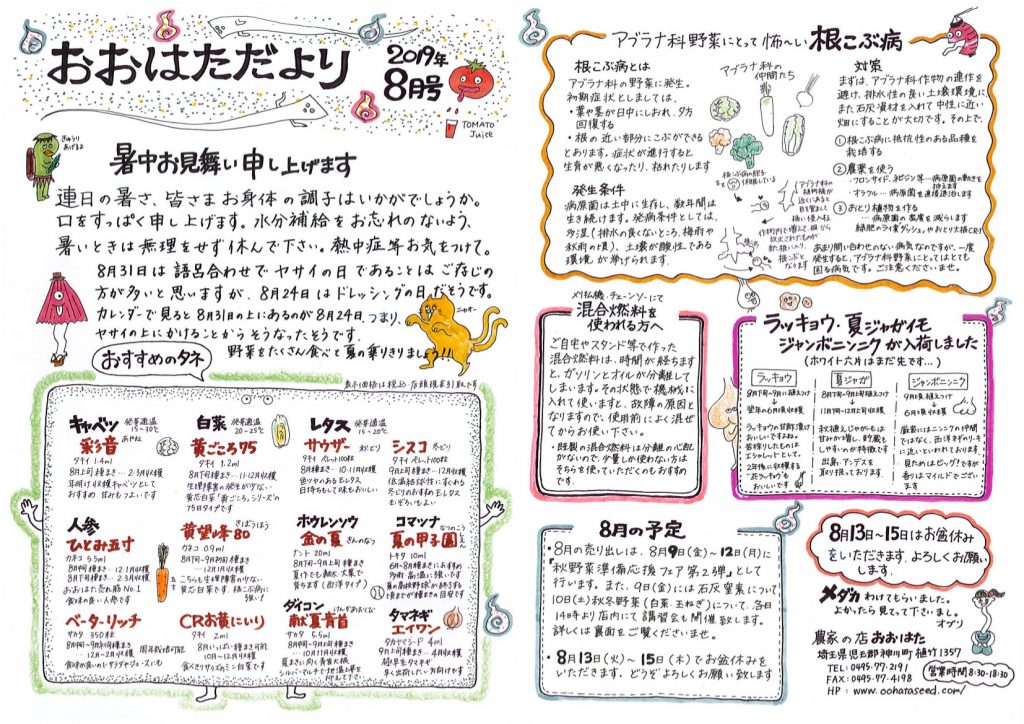 おおはただより
2019年
8月号
TOMATO
Juice
きゅうり
あげるよ
暑中お見舞い申し上げます
連日の暑さ、皆さまお身体の調子はいかがでしょうか。
口をすっぱく申し上げます。水分補給をお忘れのないよう、
暑いときは無理をせず休んで下さい。熱中症等お気をつけて。
8月31日は語呂合わせでヤサイの日であることはご存じの
方が多いと思いますが、8月24日はドレッシングの日だそうです。
カレンダーで見ると8月31日の上にあるのが8月24日、つまり、
ヤサイの上にかけることからそうなったそうです。
野菜をたくさん食べて夏の乗りきりましょう!!
ニャオー
おすすめのタネ
表示価格は税込・店頭現金引取です
キャベツ 発芽適温 15~30℃
彩音 あやね
タキイ 1.4ml
8月上旬種まき…2・3月収穫
年明け収穫キャベツとして
おすすめ 甘みもつよいです
白菜 発芽適温 20~25℃
黄ごころ75
タキイ 1.2ml
8月下旬種まき…11・12月収穫
生理障害の発生が少ない
黄芯白菜「黄ごころ」シリーズの
75日タイプです
レタス 発芽適温 15~20℃
サウザー
タキイ ペレット100粒
8月種まき…10・11月収穫
色ツヤのある玉レタス
日持ちもして味もおいしい
シスコ 冬どり
タキイ ペレット100粒
9月上旬種まき…12月収穫
低温結球性にすぐれる
冬どりのおすすめ玉レタス
人参
ひとみ五寸
カネコ 55ml
8月中旬種まき…12・1月収穫
8月下旬種まき…2・3月収穫
おおはた売れ筋No.1
食味の良い人参です
黄望峰80 きぼうほう
カネコ 0.9ml
8月下旬~9月初旬種まき
…12・1月収穫
こちらも生理障害の少ない
黄芯白菜です 根こぶ病に
強い!
ホウレンソウ
金の夏 きんのなつ
ナント 20ml
8月下旬~9月上旬種まき
夏作でも軸太・大葉で
育ちます(西洋タイプ)
コマツナ なつのこうしえん
夏の甲子園
トキタ 10ml
6月~8月種まきにおすすめ
多肥・高温に強いです
ベーターリッチ
サカタ 350粒
8月中旬~9月初旬種まき
…12月~2月収穫
食味が良いのでサラダやジュースにも
CRお黄にいり
タキイ 2ml
食べきりサイズのミニ白菜です
ダイコン
献夏青首
サカタ 5.5ml
8月中旬~9月上旬
…10月・11月収穫
夏まきに向く青首大根
タマネギ
エイワン
タカヤマシード 4ml
9月上旬種まき…4月収穫
極早生タマネギ
早く出荷したい方向けです
アブラナ科野菜にとって怖~い根こぶ病
根こぶ病とは
アブラナ科の野菜に発生。
初期症状としましては、
・葉や茎が日中にしおれ、夕方
回復する
・根の近い部分にこぶができる
とあります。症状が進行すると
生育が悪くなったり、枯れたりします
発生条件
病原菌は土中に生存し、数年間は
生き続けます。発病条件としては、
多湿(排水の良くないところ、梅雨や
秋雨の頃)、土壌が酸性である
環境が挙げられます。
アブラナ科の
仲間たち
根こぶ病の胞子
休眠している
対策
まずは、アブラナ科作物の連作を
避け、排水性の良い土壌環境に
また石灰資材を入れて中性に近い
畑にすることが大切です。その上で、
①根こぶ病に抵抗性のある品種を
栽培する
②農薬を使う
・フロンサイド、ネビジン等…病原菌の動きを
抑えます
・オラクル…病原菌を直接退治します
③おとり植物を作る
…病原菌の密度を減らします
緑肥のライ麦ダッシュ、やおとり大根CR1
あまり問い合わせのない病気なのですが、一度
発生すると、アブラナ科野菜にとってはとても
困る病気です。ご注意くださいませ。
メ刈払機・チェーンソーにて
混合燃料を
使われる方へ
ご自宅やスタンド等で作った
混合燃料は、時間が経ちます
と、ガソリンとオイルが分離して
しまいます。その状態で機械に
入れて使いますと、故障の原因と
なりますので、使用前によく混ぜ
てからお使い下さい。
・既製の混合燃料は分離の心配
がないので、少量しか使わない方は
そちらを使っていただくのもおすすめ
です。
ラッキョウ・夏ジャガイモ
ジャンボニンニクが入荷しました
(ホワイト六片はまだ先です…)
ラッキョウ
8月下旬~9月に植えつけ
↓
翌年の6月頃収穫
ラッキョウの甘酢漬け
おいしいですよね。
若採りしたものは
エシャレットとして、
2年後に収穫する
"花ラッキョウ"も
おいしいです
夏ジャガ
8月下旬~9月上旬植えつけ
↓
11月下旬~12月上旬収穫
秋植えじゃがいもは
甘みが増し、貯蔵も
しやすいのが特徴です
出島、アンデスを
取り扱っております。
ジャンボニンニク
9月頃植えつけ
↓
6月頃収穫
厳密にはニンニクの仲間
ではなく、西洋ネギやリーキ
に近いといわれております。
見ためはビッグ!ですが
香りはマイルドでござい
ます
8月の予定
・8月の売り出しは、8月9日(金)~12日(月)に
『秋野菜準備応援フェア第2弾』として
行います。また、9日(金)には石灰窒素について、
10日(土)秋冬野菜(白菜、玉ねぎ)について、各日
14時より店内にて講習会も開催致します。
詳しくは裏面をご覧くださいませ。
・8月13日(火)~15日(木)でお盆休みを
いただきます。どうぞよろしくお願い致します
8月13日~15日はお盆休み
をいただきます。よろしくお願い
します。
メダカわけてもらいました。
よかったら見てって下さいまし。
オザワ
農家の店 おおはた
埼玉県児玉郡神川町植竹1357
TEL:0495-77-2191
FAX:0495-77-4198
HP:www.oohataseed.com/
営業時間8:30-18:30